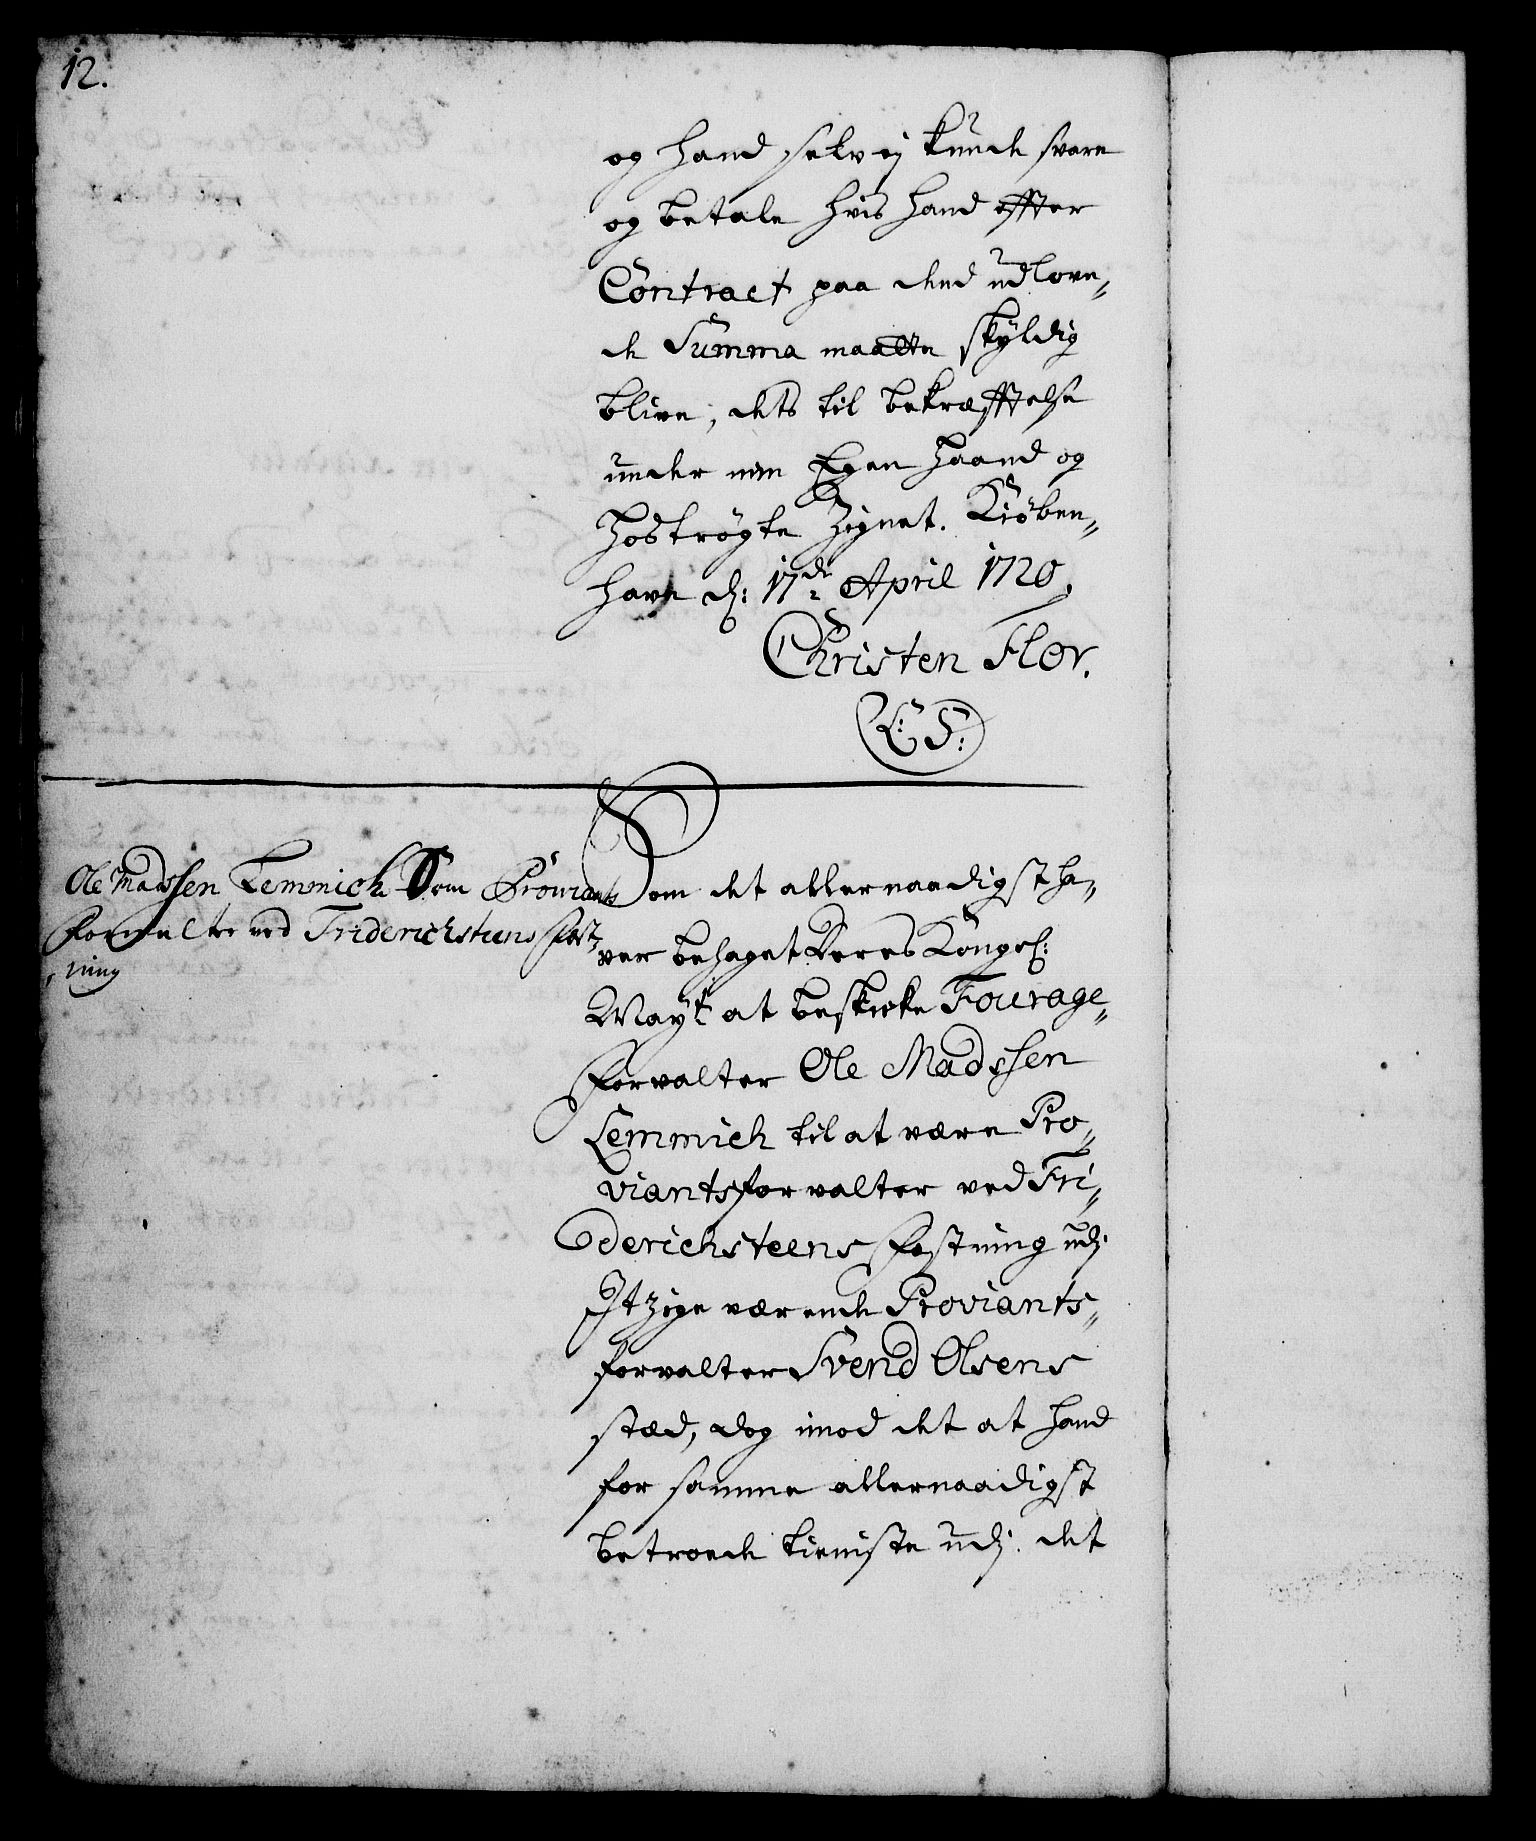 12.
og hand selv ej kunde svare
og betale hvis hand effter
Contract paa dend udlove„
de Summa maatte skyldig
blive, dets til bekræfftelse
under min Egen Haand og
Hostrøgte Zignet. Kiöben„
havn d: 17de April 1720.
Christen Flor.
L: S:
Ole Madssen Lemmich Som Proviants
Forvalter ved Friderichsteens Fæst„
ning
Som det allernaadigst ha„
ver behaget Deres Kongel:
Mayt at beskicke Fourage„
Forvalter Ole Madssen
Lemmich til at være Pro„
viantsforvalter ved Fri„
derichsteens Festning udj
Itzige værende Proviants„
forvalter Svend Olsens
stæd, dog imod det at hand
for samme allernaadigst
betroede tieniste udj det